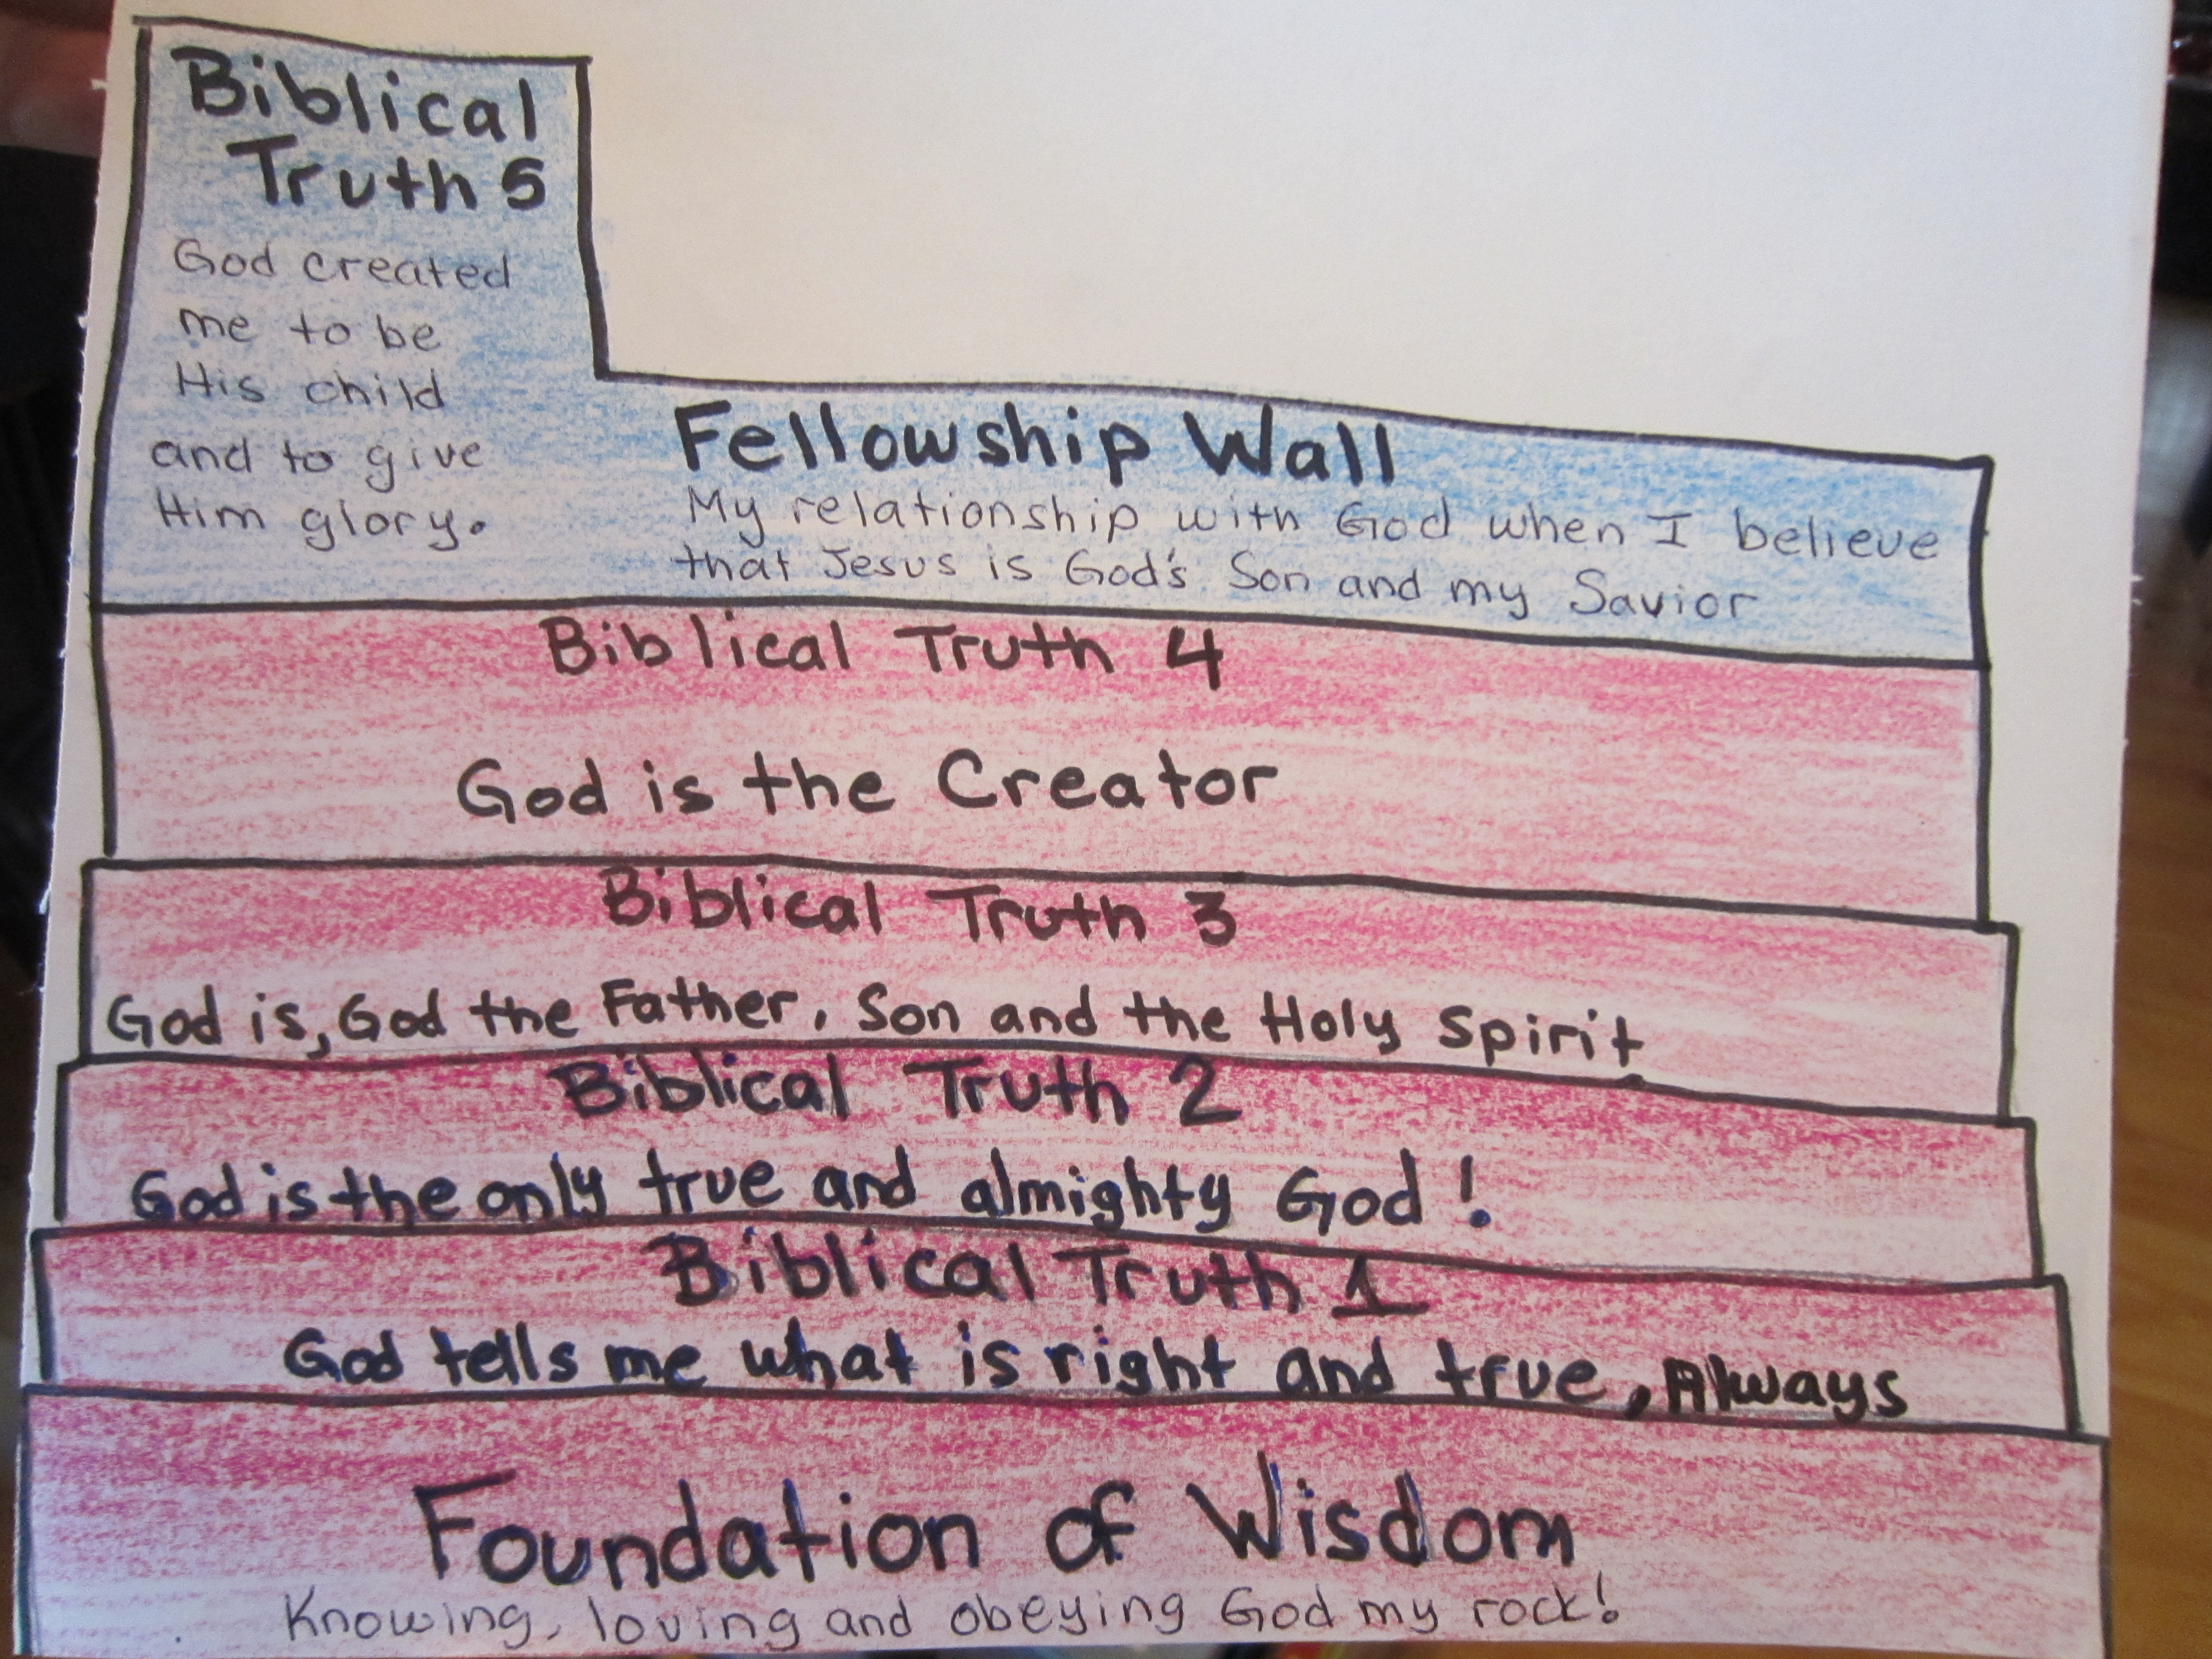 Biblical
Truth 5
God created
me to be
His child
and to give
Him glory.
Fellowship Wall
My relationship with God when I believe
that Jesus is God's Son and my Savior
Biblical Truth 4
God is the Creator
Biblical Truth 3
God is, God the Father, Son and the Holy Spirit
Biblical Truth 2
God is the only true and almighty God!
Biblical Truth 1
God tells me what is right and true, Always
Foundation of Wisdom
Knowing, loving and obeying God my rock!